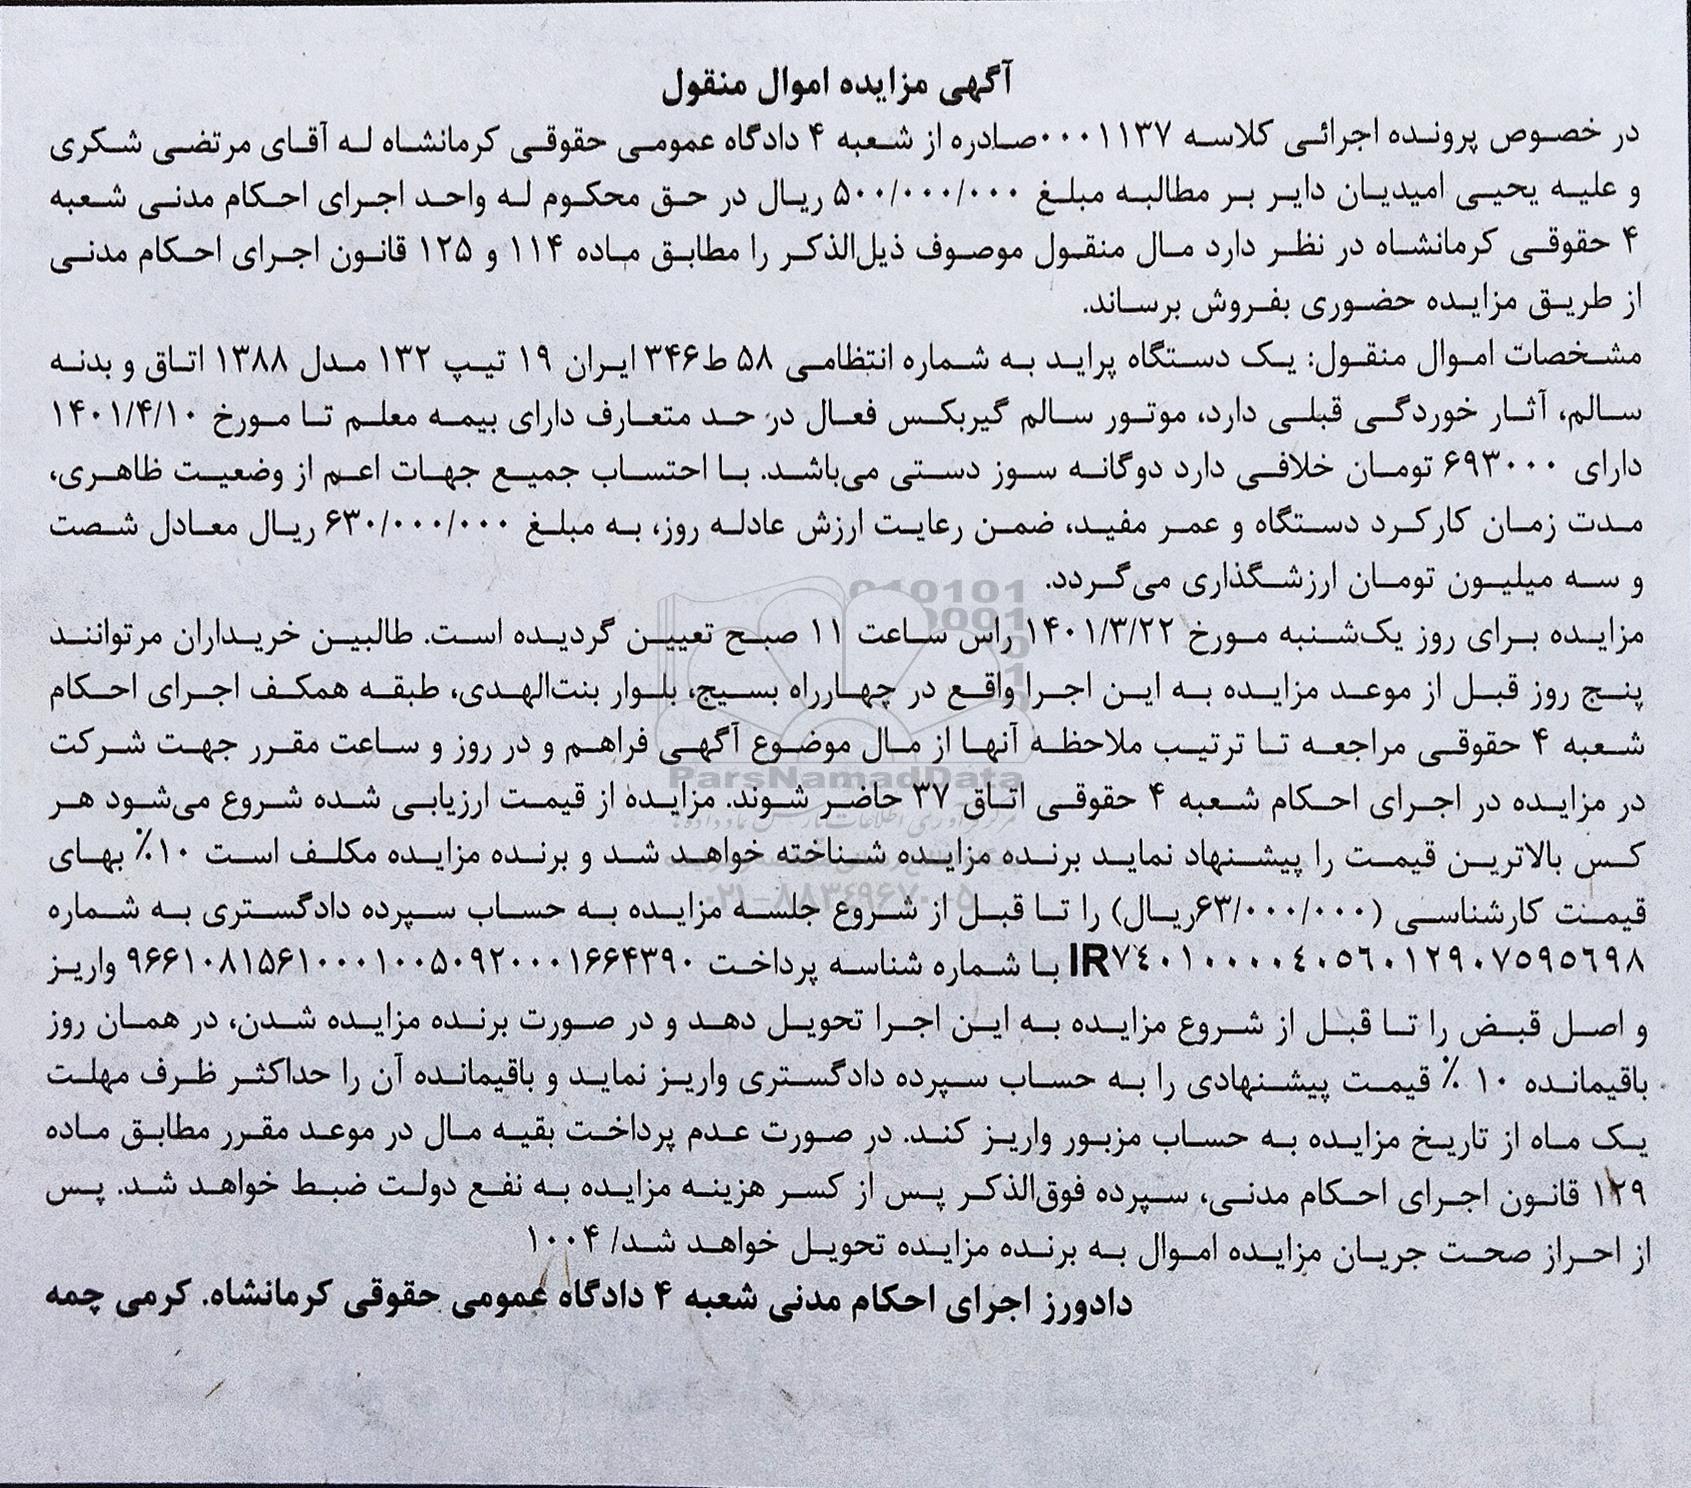 آگهی مزایده اموال منقول
در خصوص پرونده اجرائی کلاسه ۰۰۰۱۱۳۷صادره از شعبه ۴ دادگاه عمومی حقوقی کرمانشاه له آقای مرتضی شکری
و علیه یحیی امیدیان دایر بر مطالبه مبلغ ۵۰۰/۰۰۰/۰۰۰ ریال در حق محکوم له واحد اجرای احکام مدنی شعبه
۴ حقوقی کرمانشاه در نظر دارد مال منقول موصوف ذیل‌الذکر را مطابق ماده ۱۱۴ و ۱۲۵ قانون اجرای احکام مدنی
از طریق مزایده حضوری بفروش برساند.
مشخصات اموال منقول: یک دستگاه پراید به شماره انتظامی ۵۸ ط۳۴۶ ایران ۱۹ تیپ ۱۳۲ مدل ۱۳۸۸ اتاق و بدنه
سالم، آثار خوردگی قبلی دارد، موتور سالم گیربکس فعال در حد متعارف دارای بیمه معلم تا مورخ ۱۴۰۱/۴/۱۰
دارای ۶۹۳۰۰۰ تومان خلافی دارد دوگانه سوز دستی می‌باشد. با احتساب جمیع جهات اعم از وضعیت ظاهری،
مدت زمان کارکرد دستگاه و عمر مفید، ضمن رعایت ارزش عادله روز، به مبلغ ۶۳۰/۰۰۰/۰۰۰ ریال معادل شصت
و سه میلیون تومان ارزشگذاری می‌گردد.
مزایده برای روز یک‌شنبه مورخ ۱۴۰۱/۳/۲۲ راس ساعت ۱۱ صبح تعیین گردیده است. طالبین خریداران مرتوانند
پنج روز قبل از موعد مزایده به این اجرا واقع در چهارراه بسیج، بلوار بنت‌الهدی، طبقه همکف اجرای احکام
شعبه ۴ حقوقی مراجعه تا ترتیب ملاحظه آنها از مال موضوع آگهی فراهم و در روز و ساعت مقرر جهت شرکت
در مزایده در اجرای احکام شعبه ۴ حقوقی اتاق ۳۷ حاضر شوند. مزایده از قیمت ارزیابی شده شروع می‌شود هر
کس بالاترین قیمت را پیشنهاد نماید برنده مزایده شناخته خواهد شد و برنده مزایده مکلف است ۱۰٪ بهای
قیمت کارشناسی (۶۳/۰۰۰/۰۰۰ریال) را تا قبل از شروع جلسه مزایده به حساب سپرده دادگستری به شماره
IR۷٤۰۱۰۰۰۰٤۰٥٦۰۱۲۹۰۷٥۹٥٦۹۸ با شماره شناسه پرداخت ۹۶۶۱۰۸۱۵۶۱۰۰۰۱۰۰۵۰۹۲۰۰۰۱۶۶۴۳۹۰ واریز
و اصل قبض را تا قبل از شروع مزایده به این اجرا تحویل دهد و در صورت برنده مزایده شدن، در همان روز
باقیمانده ۱۰ ٪ قیمت پیشنهادی را به حساب سپرده دادگستری واریز نماید و باقیمانده آن را حداکثر ظرف مهلت
یک ماه از تاریخ مزایده به حساب مزبور واریز کند. در صورت عدم پرداخت بقیه مال در موعد مقرر مطابق ماده
۱۲۹ قانون اجرای احکام مدنی، سپرده فوق‌الذکر پس از کسر هزینه مزایده به نفع دولت ضبط خواهد شد. پس
از احراز صحت جریان مزایده اموال به برنده مزایده تحویل خواهد شد/ ۱۰۰۴
دادورز اجرای احکام مدنی شعبه ۴ دادگاه عمومی حقوقی کرمانشاه. کرمی چمه
ParsNamadData
۰۲۱-۸۸۳۴۹۶۷۰-۵